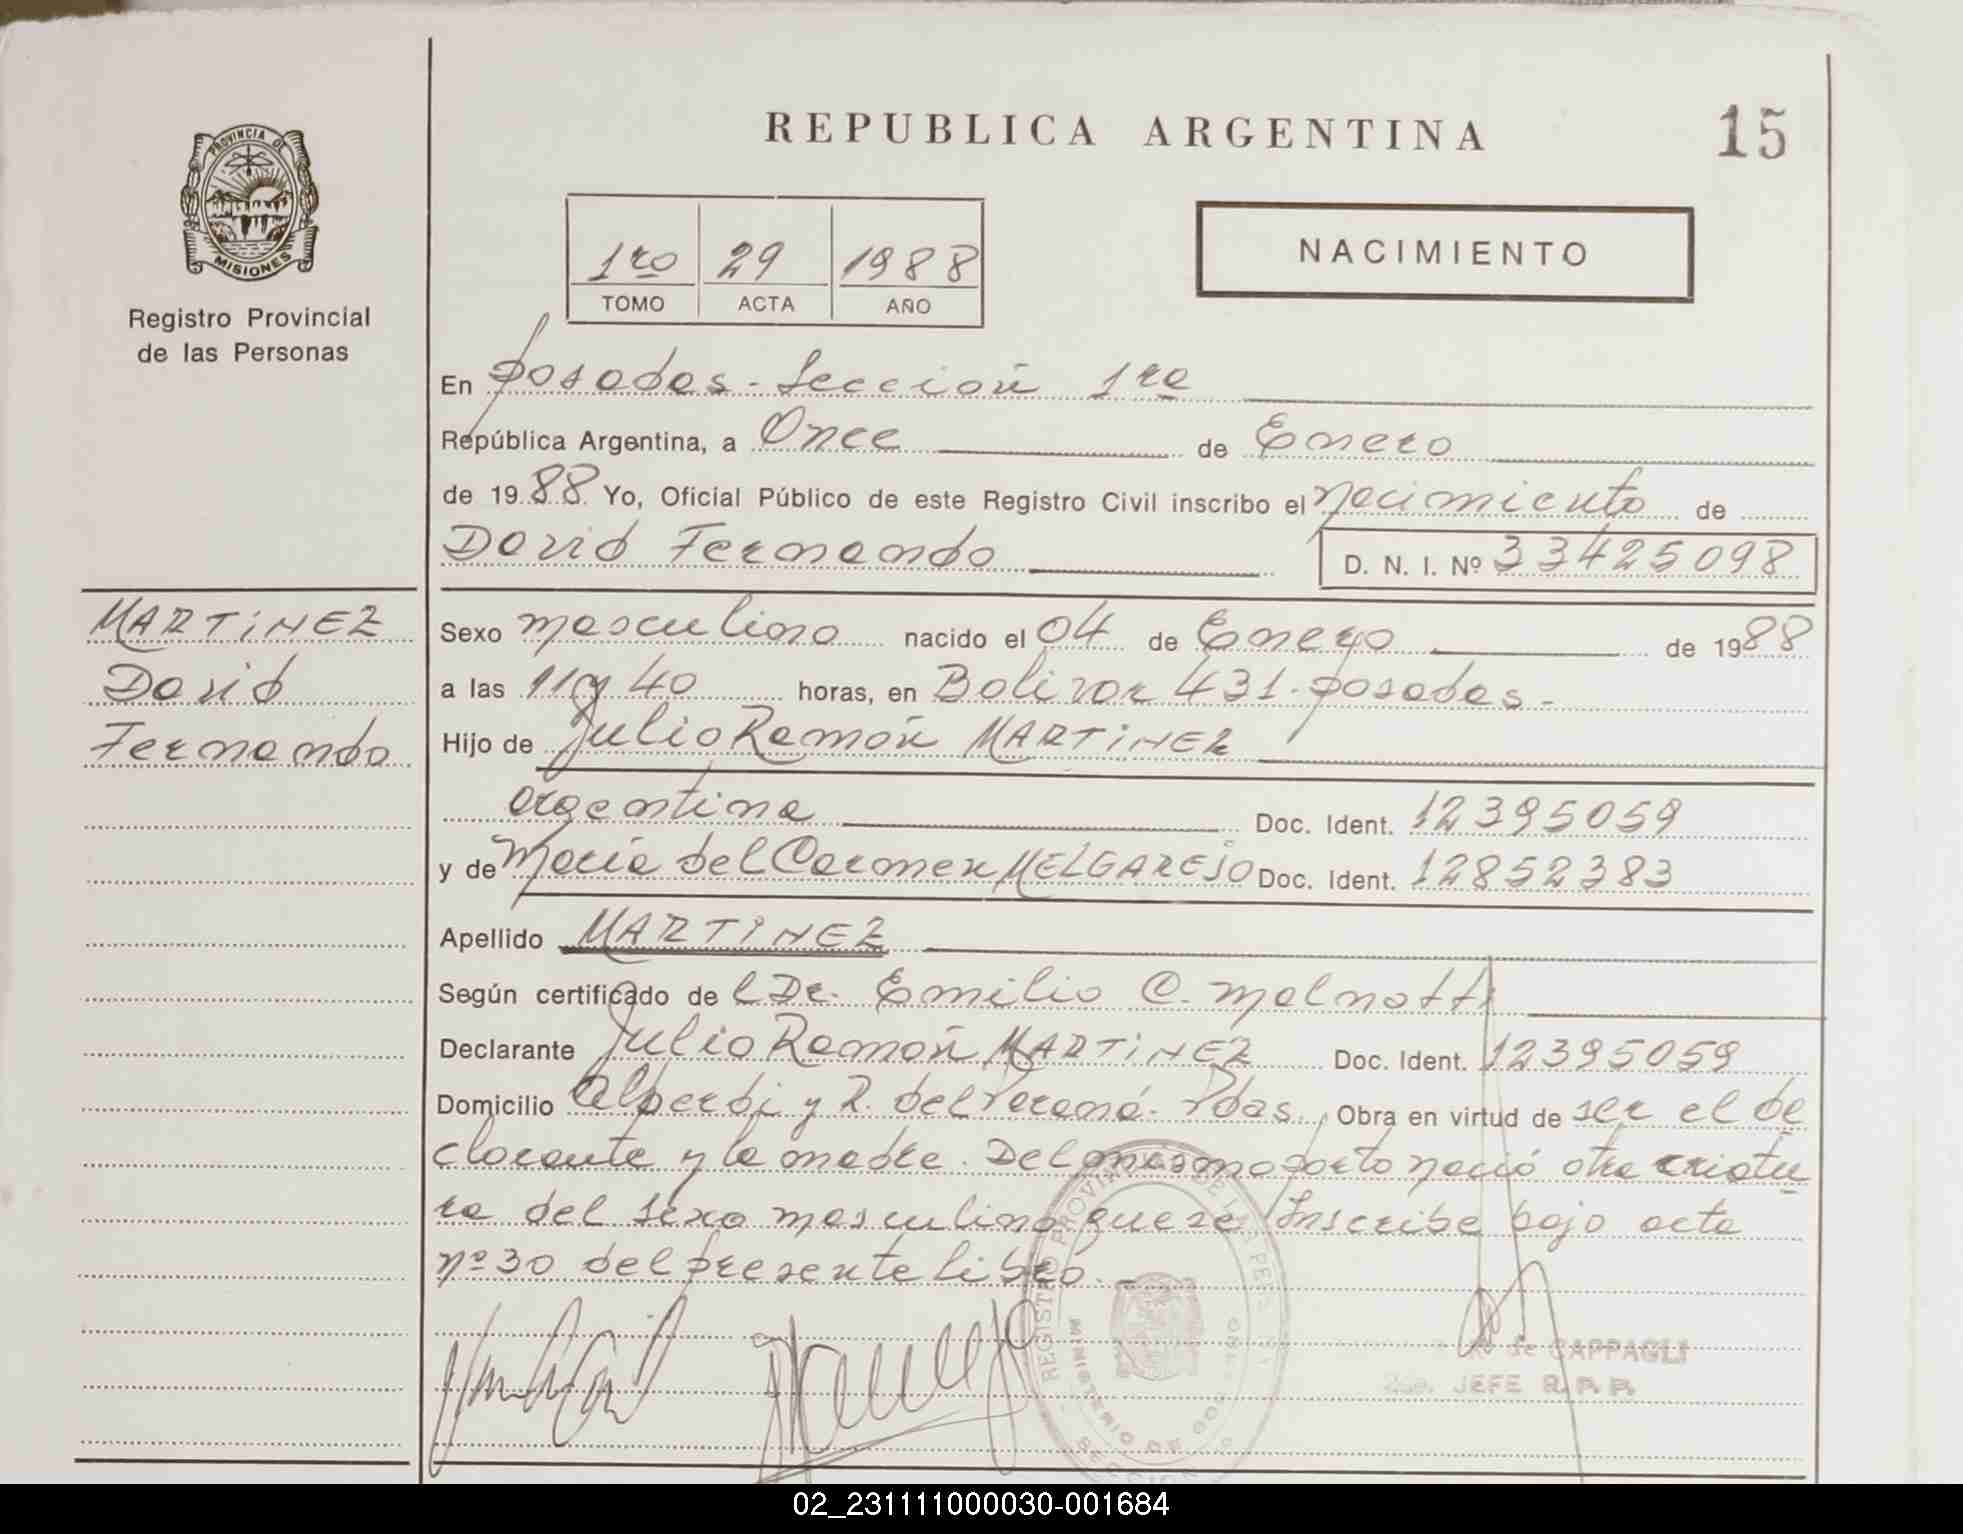 PROVINCIA DE
MISIONES
Registro Provincial
de las Personas
MARTINEZ
David
Fernando
REPUBLICA ARGENTINA
15
1ro 29 1988
TOMO ACTA AÑO
NACIMIENTO
En Posadas - Sección 1ra
República Argentina, a Once de Enero
de 1988 Yo, Oficial Público de este Registro Civil inscribo el Nacimiento de
David Fernando D. N. I. Nº 33425098
Sexo masculino nacido el 04 de Enero de 1988
a las 11 y 40 horas, en Bolivar 431 - Posadas -
Hijo de Julio Ramón MARTINEZ
argentina Doc. Ident. 12395059
y de María del Carmen MELGAREJO Doc. Ident. 12852383
Apellido MARTINEZ
Según certificado de l Dr. Emilio C. Malnatti
Declarante Julio Ramón MARTINEZ Doc. Ident. 12395059
Domicilio Alberdi y R. del Paraná - Pdas. Obra en virtud de ser el de
clarante y la madre. Del mismo parto nació otra criatu
ra del sexo masculino que se Inscribe bajo acta
nº 30 del presente libro. -
REGISTRO PROVINCIAL DE LAS PERS
MINISTERIO DE GOBIERNO
SECCION
de CAPPAGLI
2do. JEFE R. P. P.
02_231111000030-001684